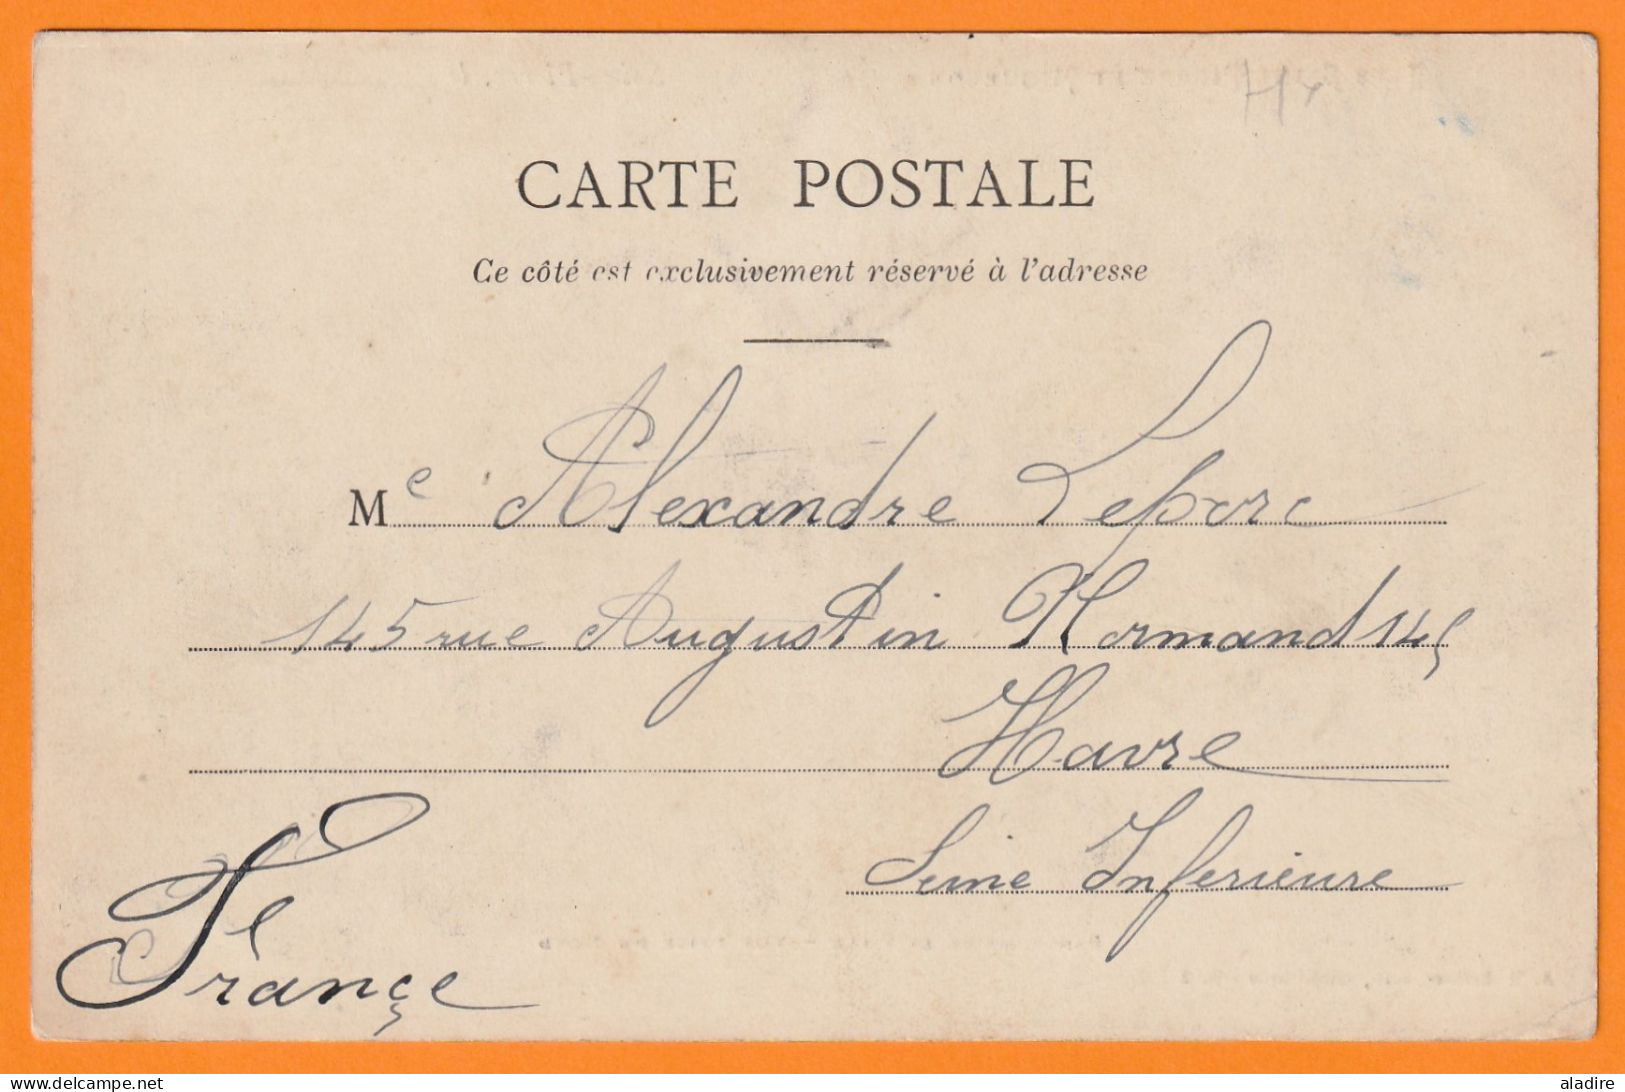 CARTE POSTALE
Ce côté est exclusivement réservé à l'adresse
Me Alexandre Leporc
145 rue Augustin Normand 145
Havre
Seine Inferieure
France
aladire